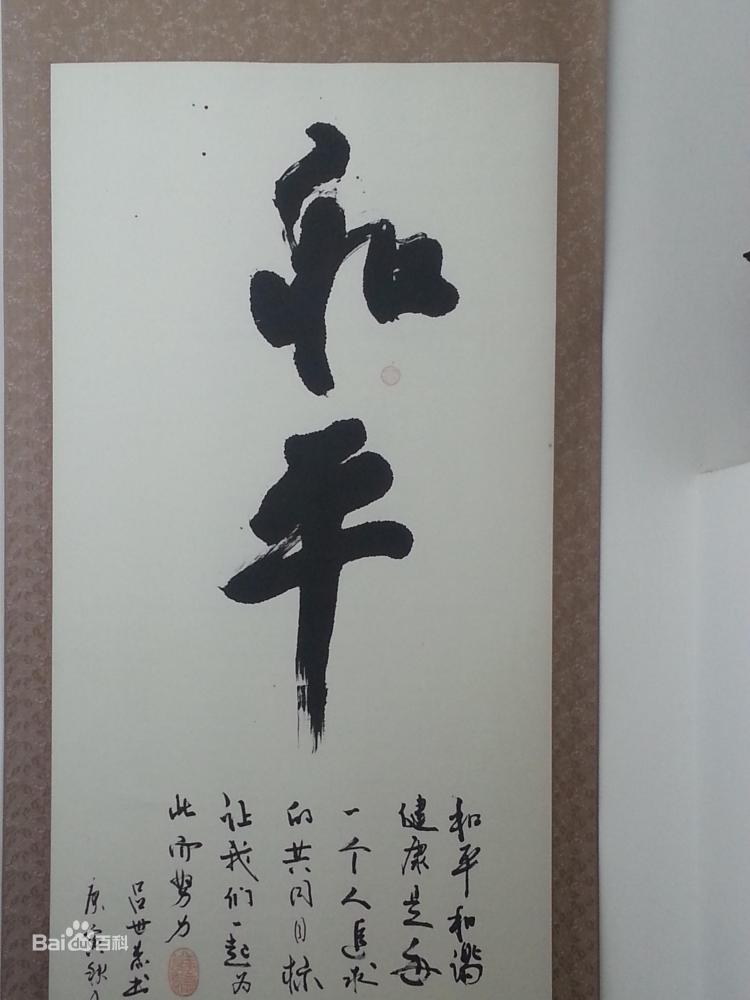 和平
和平和谐
健康是每
一个人追求
的共同目标
让我们一起为
此而努力
吕世杰书
庚寅秋月
Baidu百科